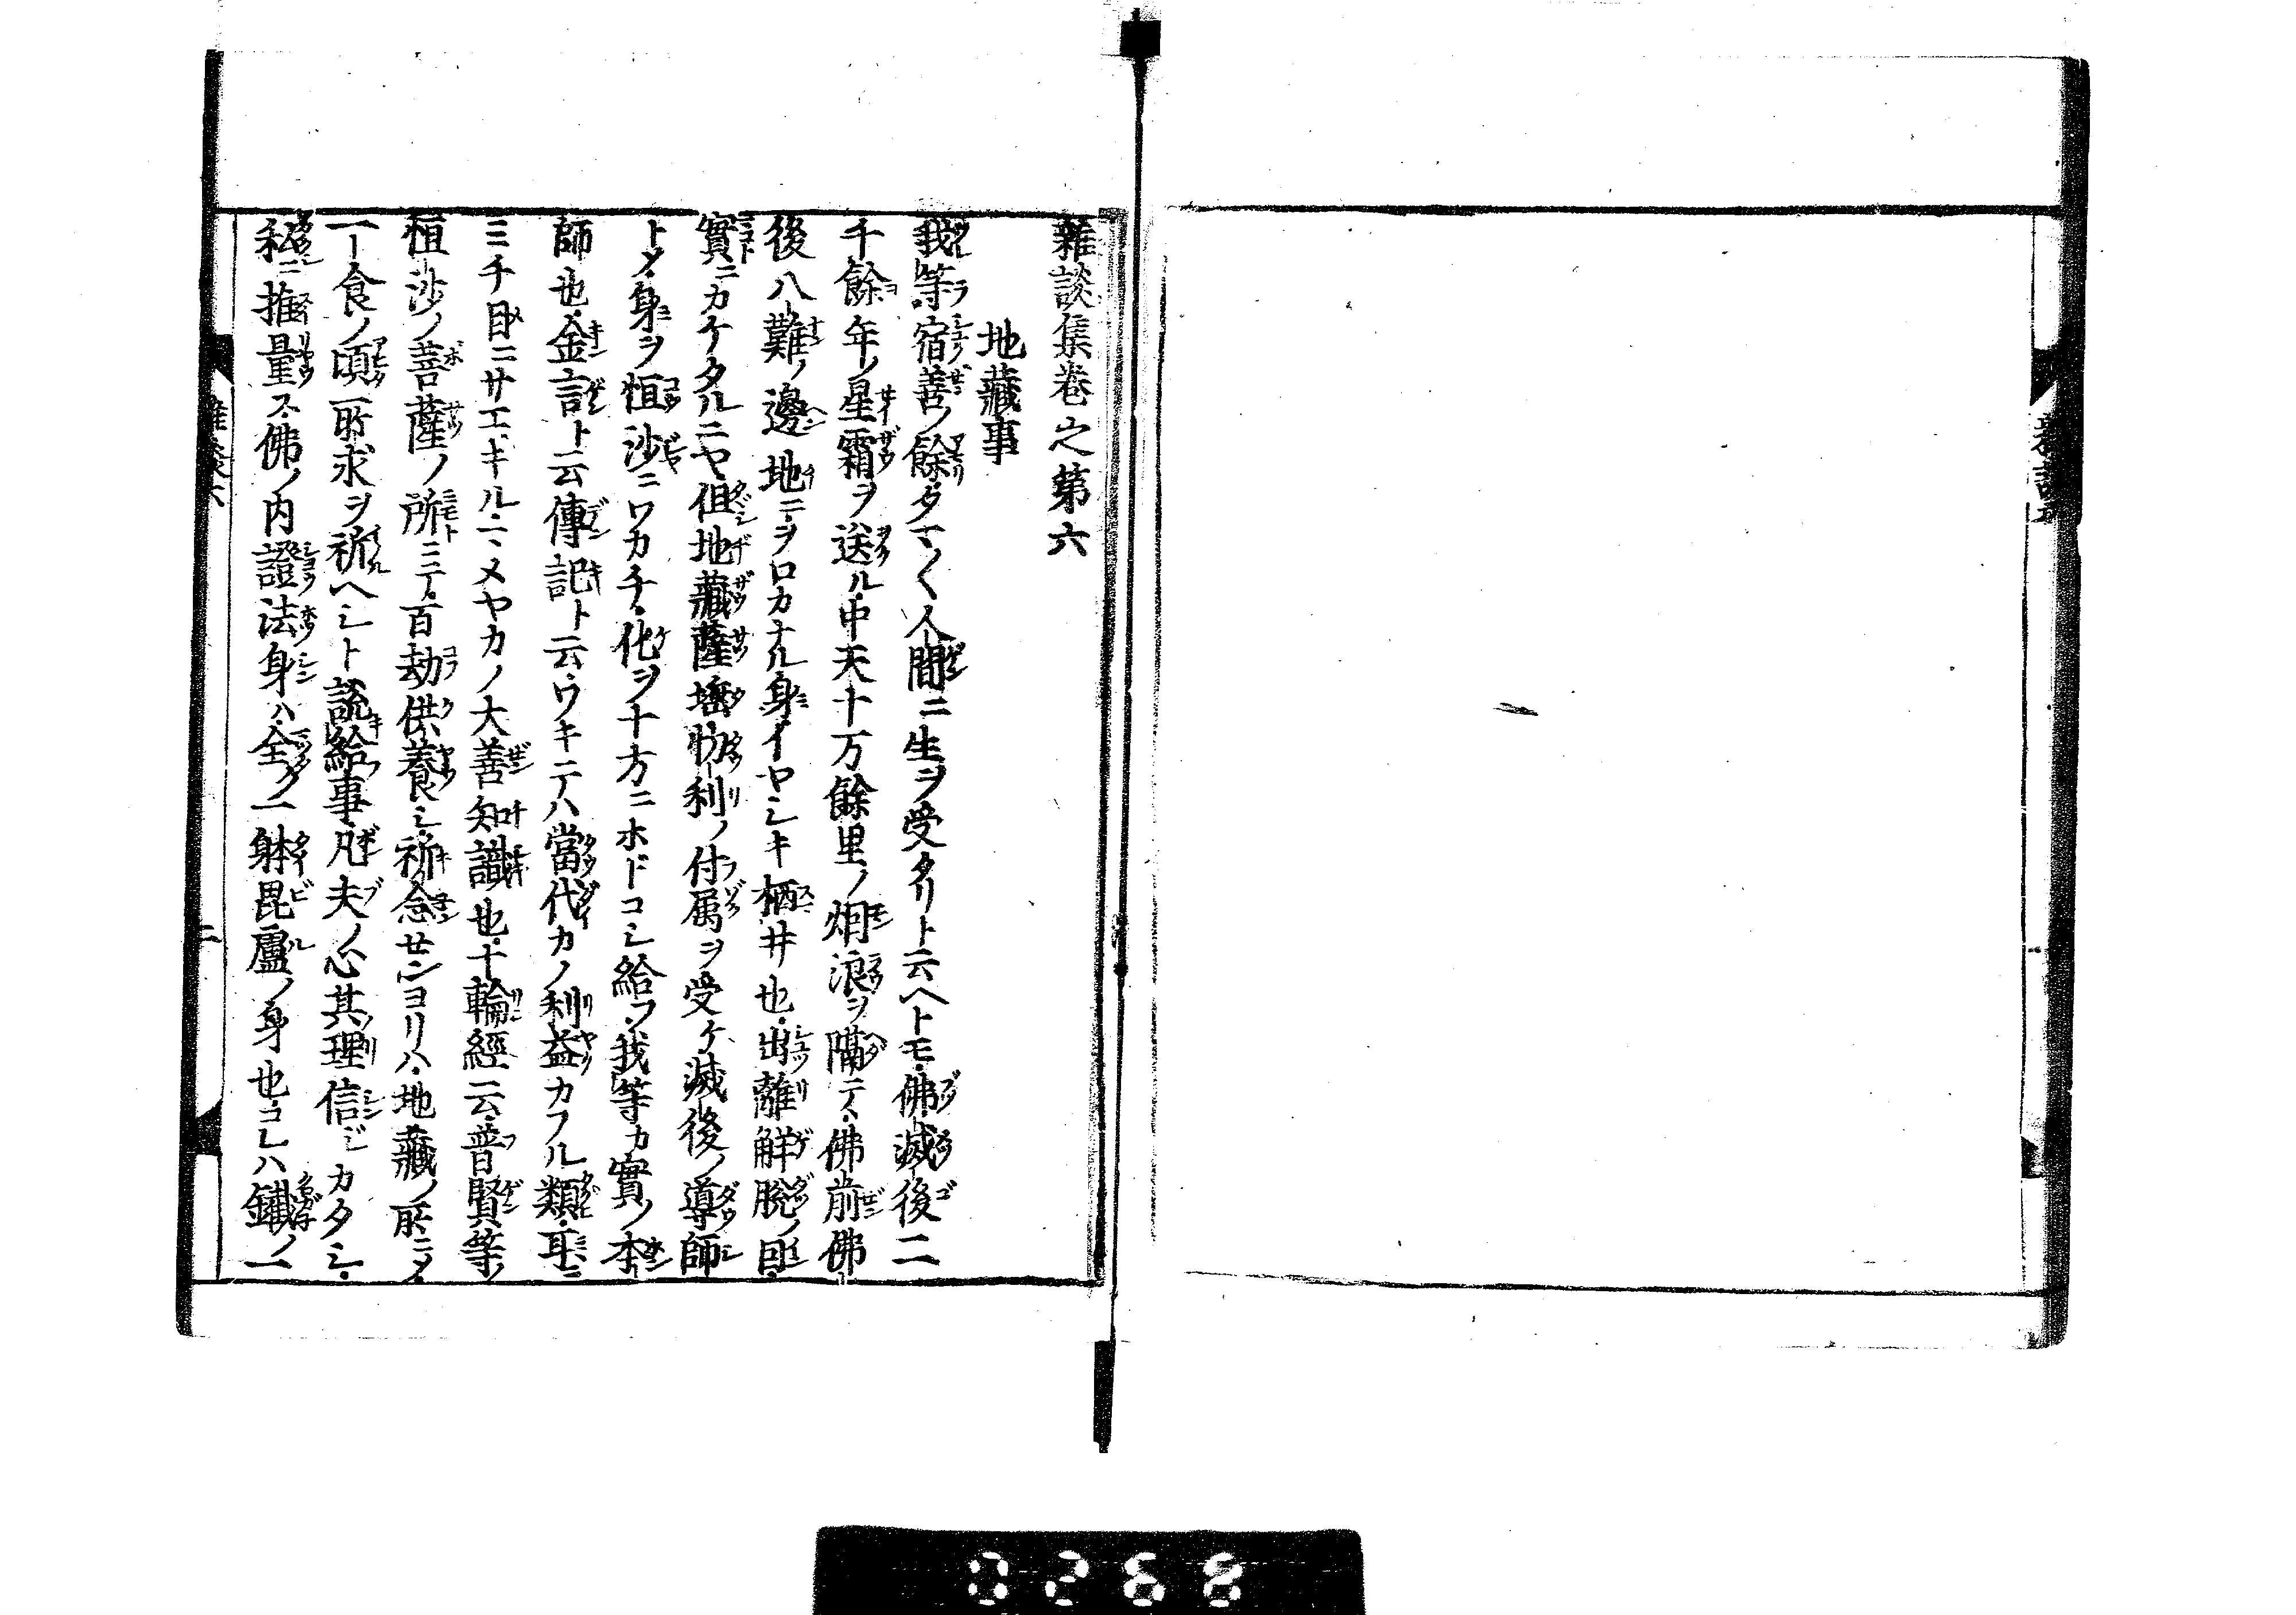 雜談集卷之第六
地藏事
我等宿善ノ餘タマ〱人間ニ生ヲ受タリト云ヘトモ佛滅後二
千餘年ノ星霜ヲ送ル中天十万餘里ノ烟浪ヲ隔テ佛前佛
後八難ノ邊地ニヲロカナル身イヤシキ栖井也出離解脱ノ因
實ニカケタルニヤ但地藏薩埵忉利ノ付属ヲ受ケ滅後ノ導師
トメ身ヲ恒沙ニワカチ化ヲ十方ニホドコシ給フ我等カ實ノ本
師也金言ト云傳記ト云ワキニテハ當代カノ利益カフル類耳ニ
ミチ目ニサエキルニヤカノ大善知識也十輪經云普賢等ノ
恒沙ノ菩薩ノ所ニテ百劫供養シ祈念センヨリハ地藏ノ所ニメ
一食ノ頃所求ヲ祈ヘシト説給事凡夫ノ心其理信ジカタシ
私ニ推量ス佛ノ内證法身ハ全ク一躰毘盧ノ身也コレハ鏽ノ一
雜談六
二
0268